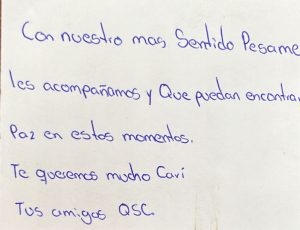 Con nuestro mas Sentido Pesame
les acompañamos y Que puedan encontrar
Paz en estos momentos.
Te queremos mucho Cari
Tus amigos QSC